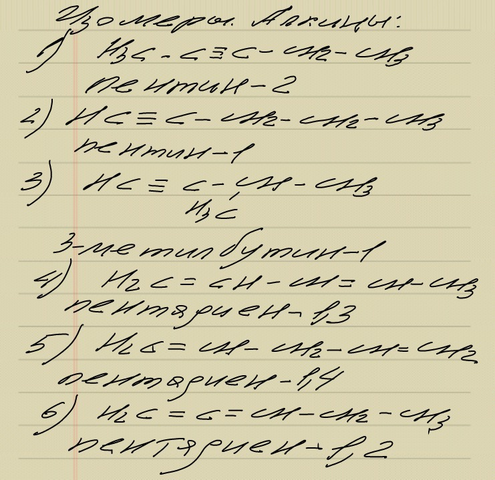 Изомеры. Алкины:
1) H3C - C≡C - CH2 - CH3
пентин-2
2) HC≡C - CH2 - CH2 - CH3
пентин-1
3) HC≡C - CH - CH3
H3C
3-метилбутин-1
4) H2C = CH - CH = CH - CH3
пентадиен-1,3
5) H2C = CH - CH2 - CH = CH2
пентадиен-1,4
6) H2C = C = CH - CH2 - CH3
пентадиен-1,2